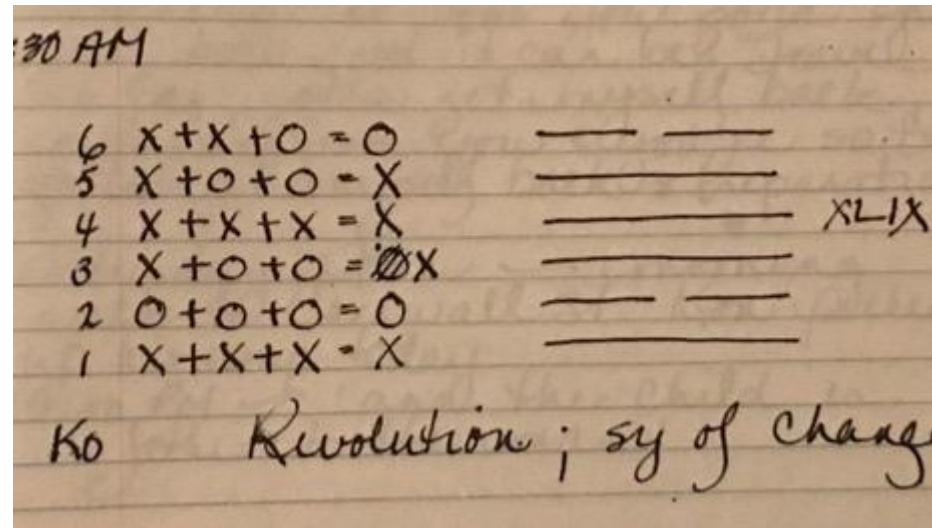 :30 AM
6 X + X + O = O
5 X + O + O = X
4 X + X + X = X XLIX
3 X + O + O = X
2 O + O + O = O
1 X + X + X = X
Ko Revolution ; sy of Chang